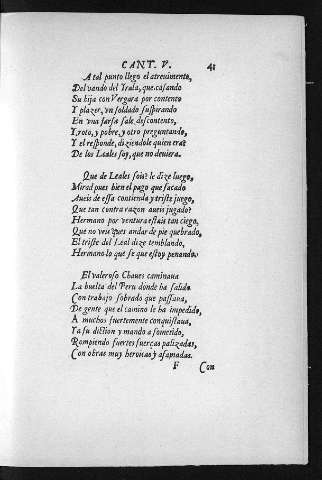 CANT. V. 41
A tal punto llego el atreuimento,
Del vando del Yrala, que casando
Su hija con Vergara por contento
Y plazer, vn soldado suspirando
En vna farsa sale descontento,
Y roto, y pobre, y otro preguntando,
Y el responde, diziendole quien era?
De los Leales soy, que no deuiera.
Que de Leales sois? le dize luego,
Mirad pues bien el pago que sacado
Aueis de essa contienda y triste juego,
Que tan contra razon aueis jugado?
Hermano por ventura estais tan ciego,
Que no veis? pues andar de pie quebrado,
El triste del Leal dize temblando,
Hermano lo que se que estoy penando.
El valeroso Chaues caminaua
La buelta del Peru donde ha salido
Con trabajo sobrado que passaua,
De gente que el camino le ha impedido,
A muchos fuertemente conquistaua,
Y a su diction y mando a sometido,
Rompiendo fuertes fuerças palizadas,
Con obras muy heroicas y afamadas.
F Con